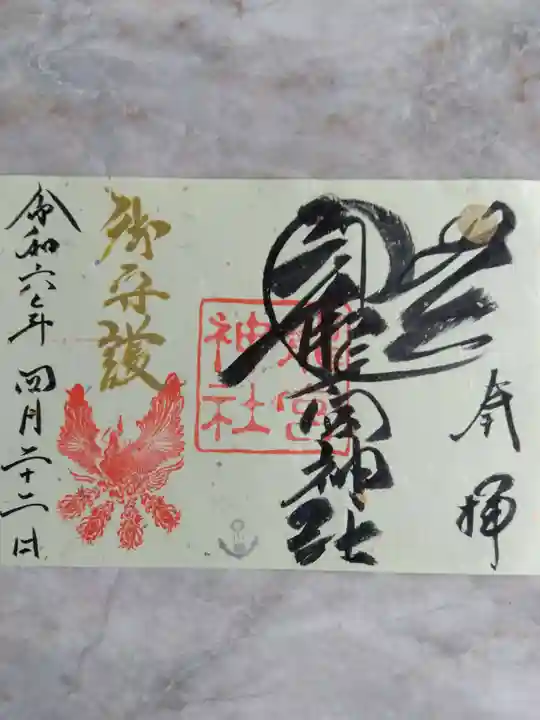 奉拝
龍宮神社
龍宮
神社
御守護
令和六年四月二十二日